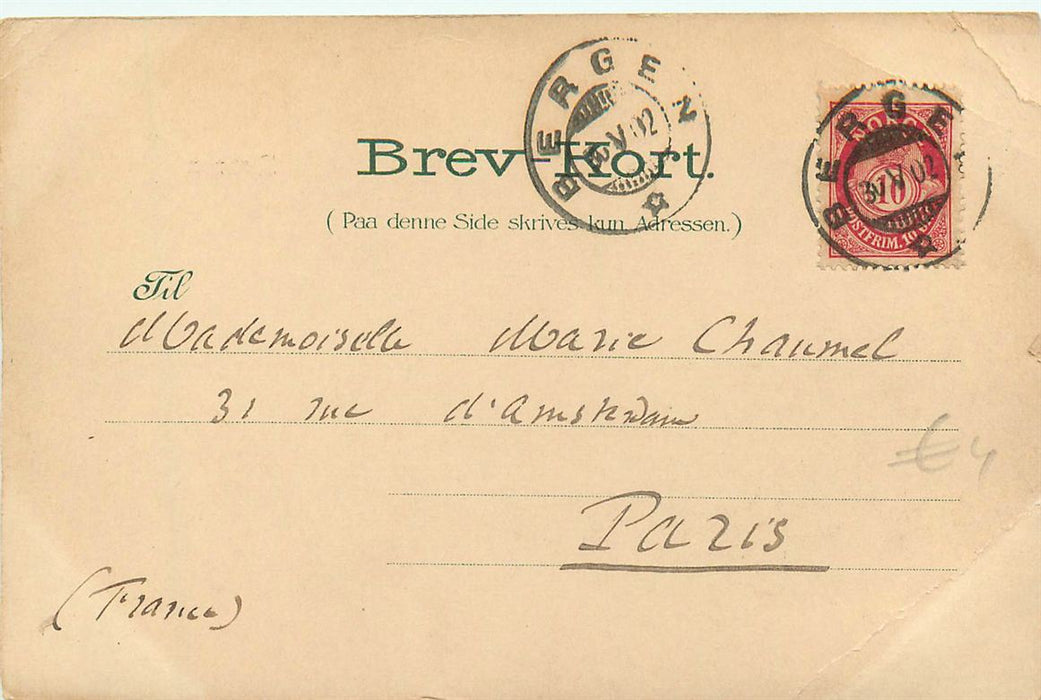 BERGEN
V 02
BERGEN
31 V 02
NORGE
10
POSTFRIM. 10
Brev-Kort.
(Paa denne Side skrives kun Adressen.)
Til
Mademoiselle Marie Chaumel
31 rue d'Amsterdam
€ 4
Paris
(France)